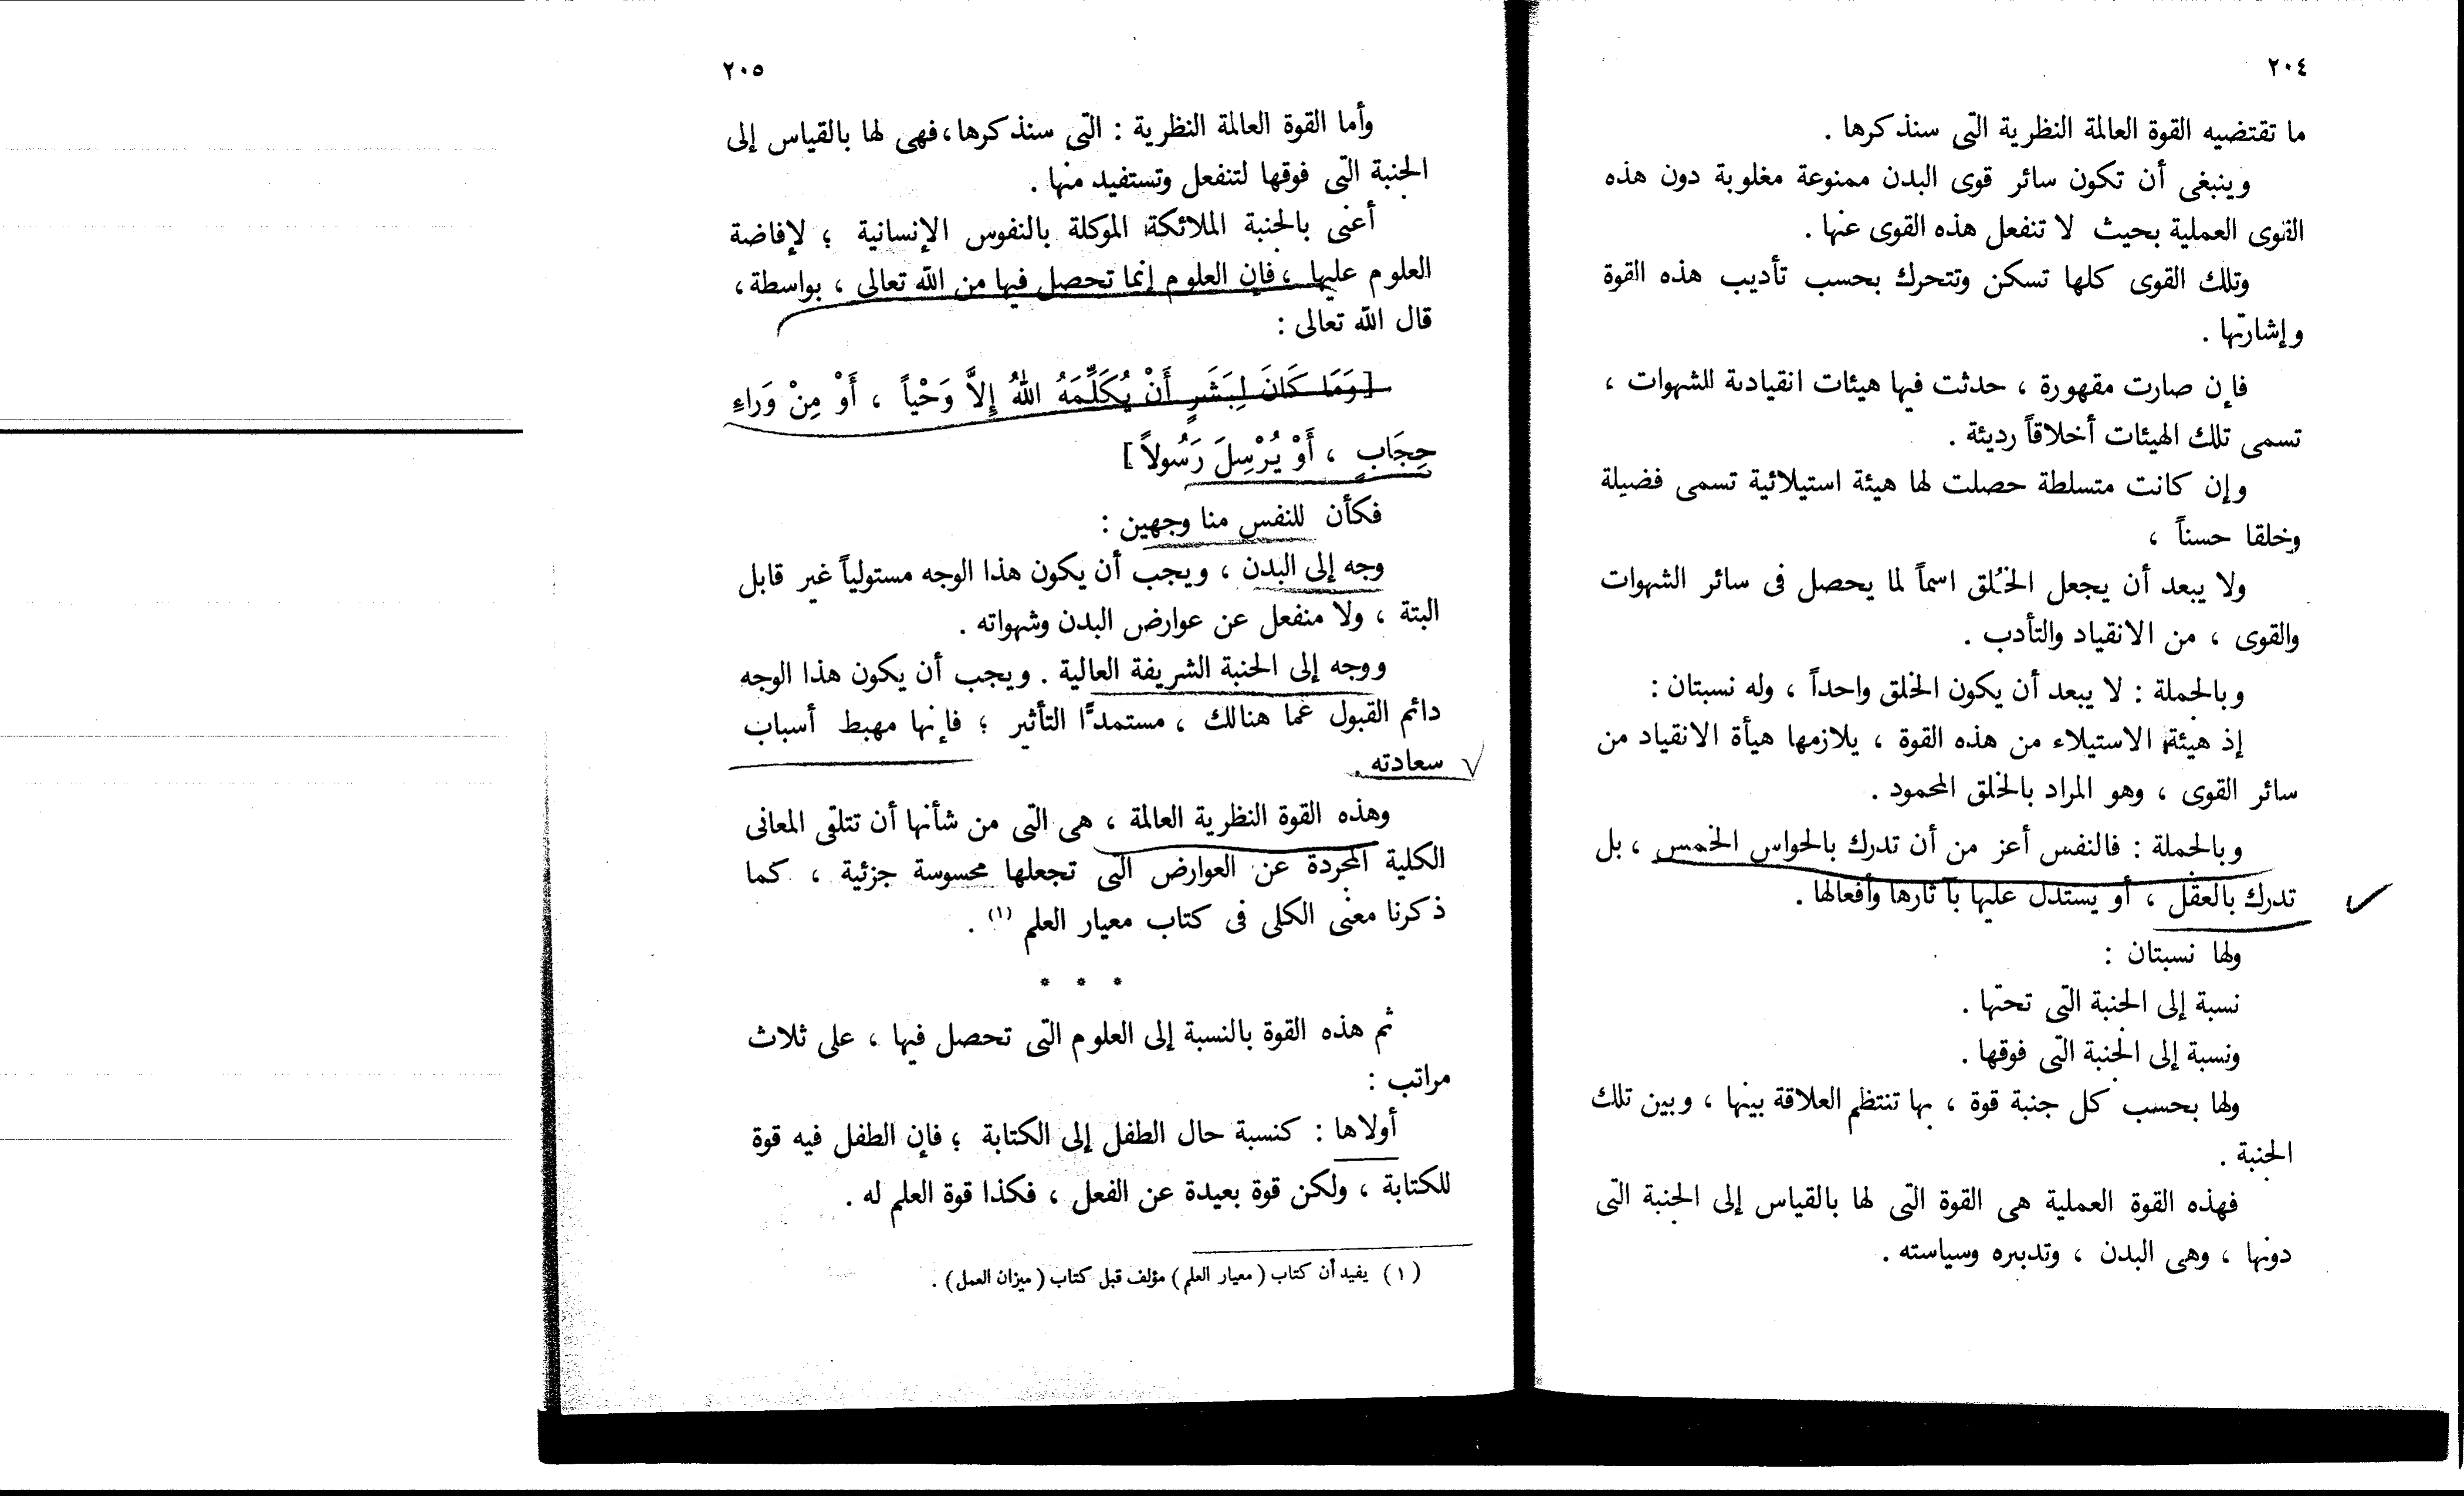 ٢٠٤
ما تقتضيه القوة العالمة النظرية التى سنذكرها .
وينبغى أن تكون سائر قوى البدن ممنوعة مغلوبة دون هذه
القوى العملية بحيث لا تنفعل هذه القوى عنها .
وتلك القوى كلها تسكن وتتحرك بحسب تأديب هذه القوة
وإشارتها .
فإن صارت مقهورة ، حدثت فيها هيئات انقيادية للشهوات ،
تسمى تلك الهيئات أخلاقاً رديئة .
وإن كانت متسلطة حصلت لها هيئة استيلائية تسمى فضيلة
وخلقا حسناً ،
ولا يبعد أن يجعل الخُلق اسماً لما يحصل فى سائر الشهوات
والقوى ، من الانقياد والتأدب .
وبالجملة : لا يبعد أن يكون الخلق واحداً ، وله نسبتان :
إذ هيئة الاستيلاء من هذه القوة ، يلازمها هيأة الانقياد من
سائر القوى ، وهو المراد بالخلق المحمود .
وبالجملة : فالنفس أعز من أن تدرك بالحواس الخمس ، بل
تدرك بالعقل ، أو يستدل عليها بآثارها وأفعالها .
ولها نسبتان :
نسبة إلى الجنبة التى تحتها .
ونسبة إلى الجنبة التى فوقها .
ولها بحسب كل جنبة قوة ، بها تنتظم العلاقة بينها ، وبين تلك
الجنبة .
فهذه القوة العملية هى القوة التى لها بالقياس إلى الجنبة التى
دونها ، وهى البدن ، وتدبيره وسياسته .
٢٠٥
وأما القوة العالمة النظرية : التى سنذكرها ، فهى لها بالقياس إلى
الجنبة التى فوقها لتنفعل وتستفيد منها .
أعنى بالجنبة الملائكة الموكلة بالنفوس الإنسانية ؛ لإفاضة
العلوم عليها ، فإن العلوم إنما تحصل فيها من الله تعالى ، بواسطة ،
قال الله تعالى :
[ وَمَا كَانَ لِبَشَرٍ أَنْ يُكَلِّمَهُ اللهُ إِلاَّ وَحْياً ، أَوْ مِنْ وَرَاءِ
حِجَابٍ ، أَوْ يُرْسِلَ رَسُولاً ]
فكأن للنفس منا وجهين :
وجه إلى البدن ، ويجب أن يكون هذا الوجه مستولياً غير قابل
البتة ، ولا منفعل عن عوارض البدن وشهواته .
ووجه إلى الجنبة الشريفة العالية . ويجب أن يكون هذا الوجه
دائم القبول عما هنالك ، مستمدًّا التأثير ؛ فإنها مهبط أسباب
سعادته .
وهذه القوة النظرية العالمة ، هى التى من شأنها أن تتلقى المعانى
الكلية المجردة عن العوارض التى تجعلها محسوسة جزئية ، كما
ذكرنا معنى الكلى فى كتاب معيار العلم (١) .
* * *
ثم هذه القوة بالنسبة إلى العلوم التى تحصل فيها ، على ثلاث
مراتب :
أولاها : كنسبة حال الطفل إلى الكتابة ؛ فإن الطفل فيه قوة
للكتابة ، ولكن قوة بعيدة عن الفعل ، فكذا قوة العلم له .
( ١ ) يفيد أن كتاب ( معيار العلم ) مؤلف قبل كتاب ( ميزان العمل ) .